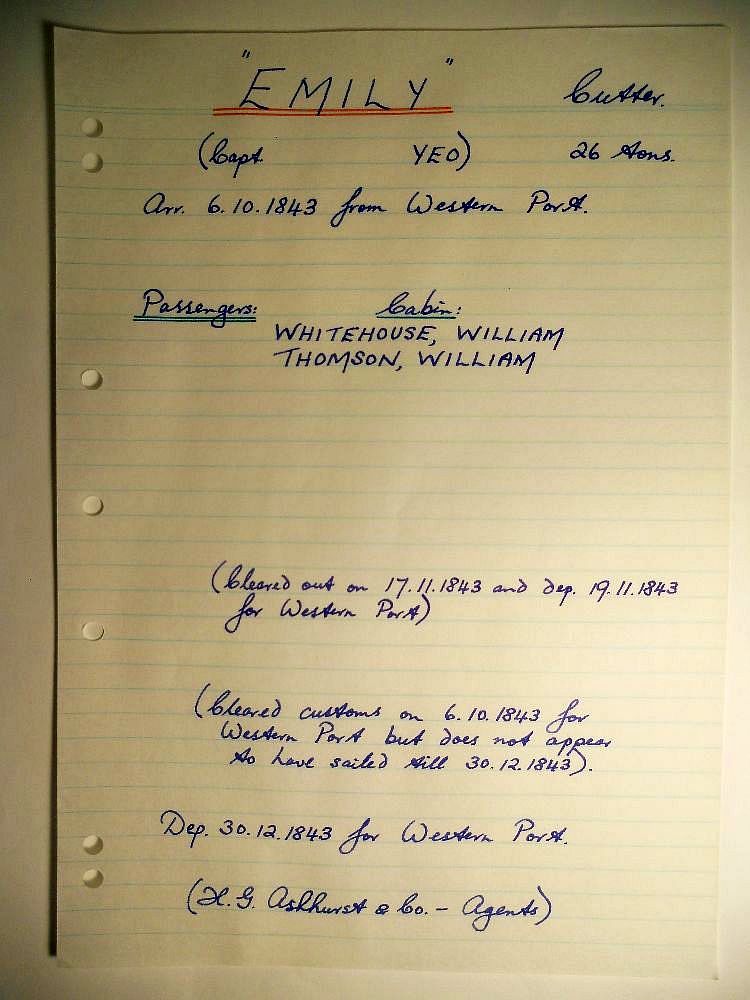 "EMILY" Cutter.
(Capt. YEO) 26 tons.
Arr. 6.10.1843 from Western Port.
Passengers: Cabin:
WHITEHOUSE, WILLIAM
THOMSON, WILLIAM
(Cleared out on 17.11.1843 and dep. 19.11.1843
for Western Port)
(Cleared customs on 6.10.1843 for
Western Port but does not appear
to have sailed till 30.12.1843).
Dep. 30.12.1843 for Western Port.
(H.G. Ashhurst & Co. - Agents)